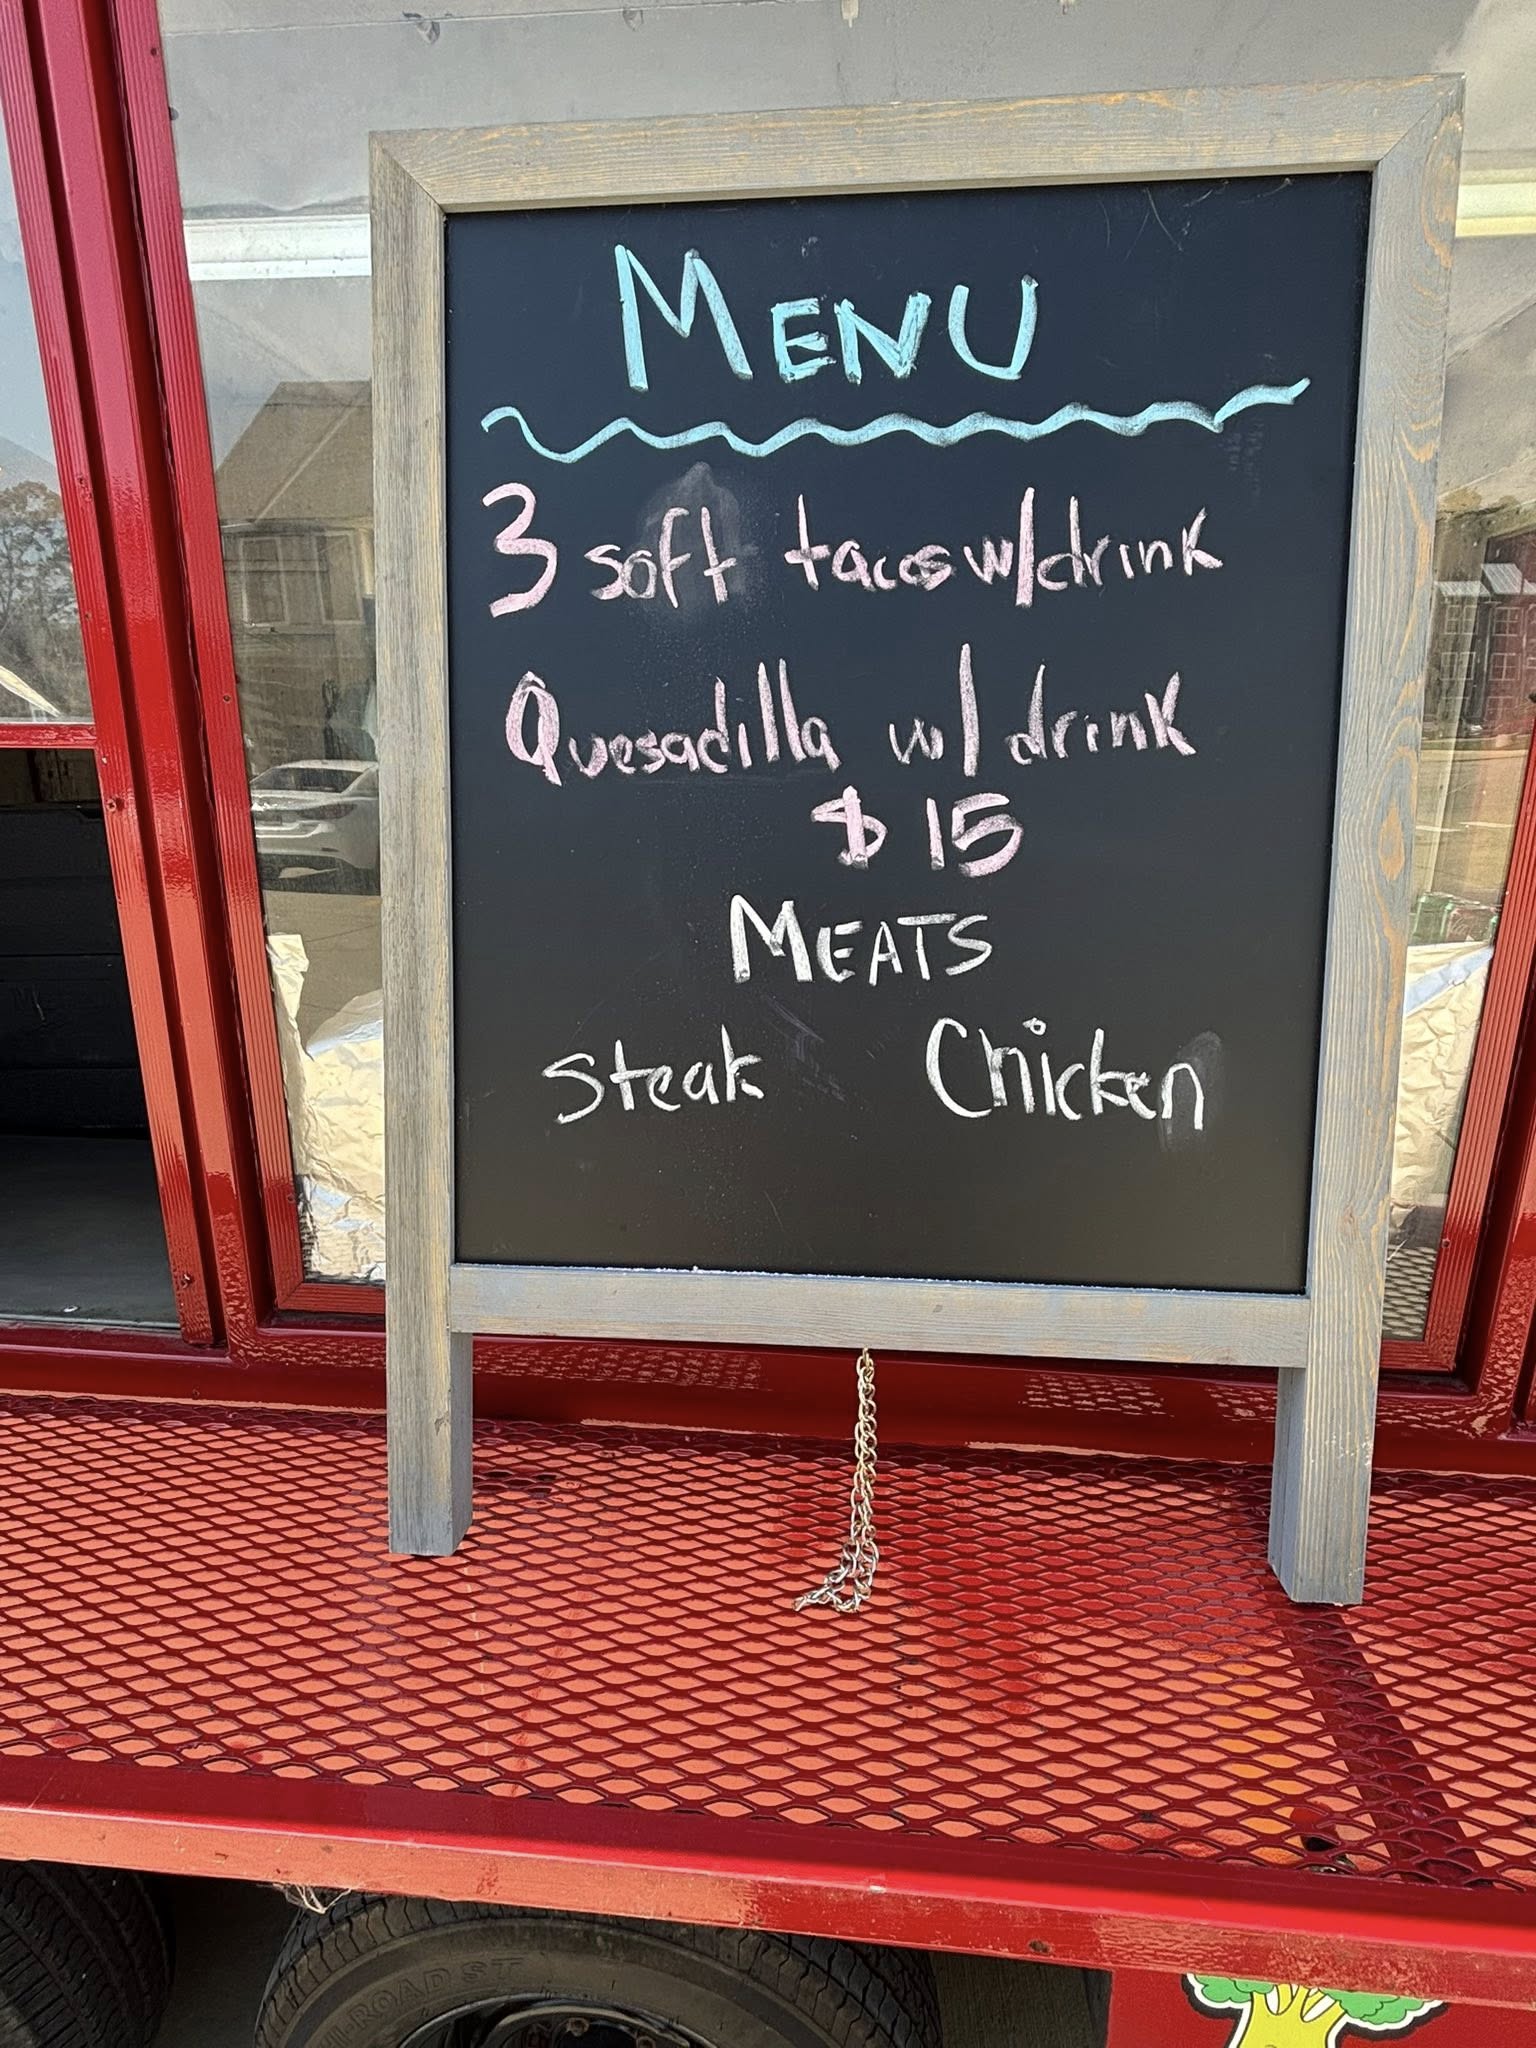 MENU
3 soft tacos w/drink
Quesadilla w/ drink
$15
MEATS
Steak Chicken
HI-ROAD ST